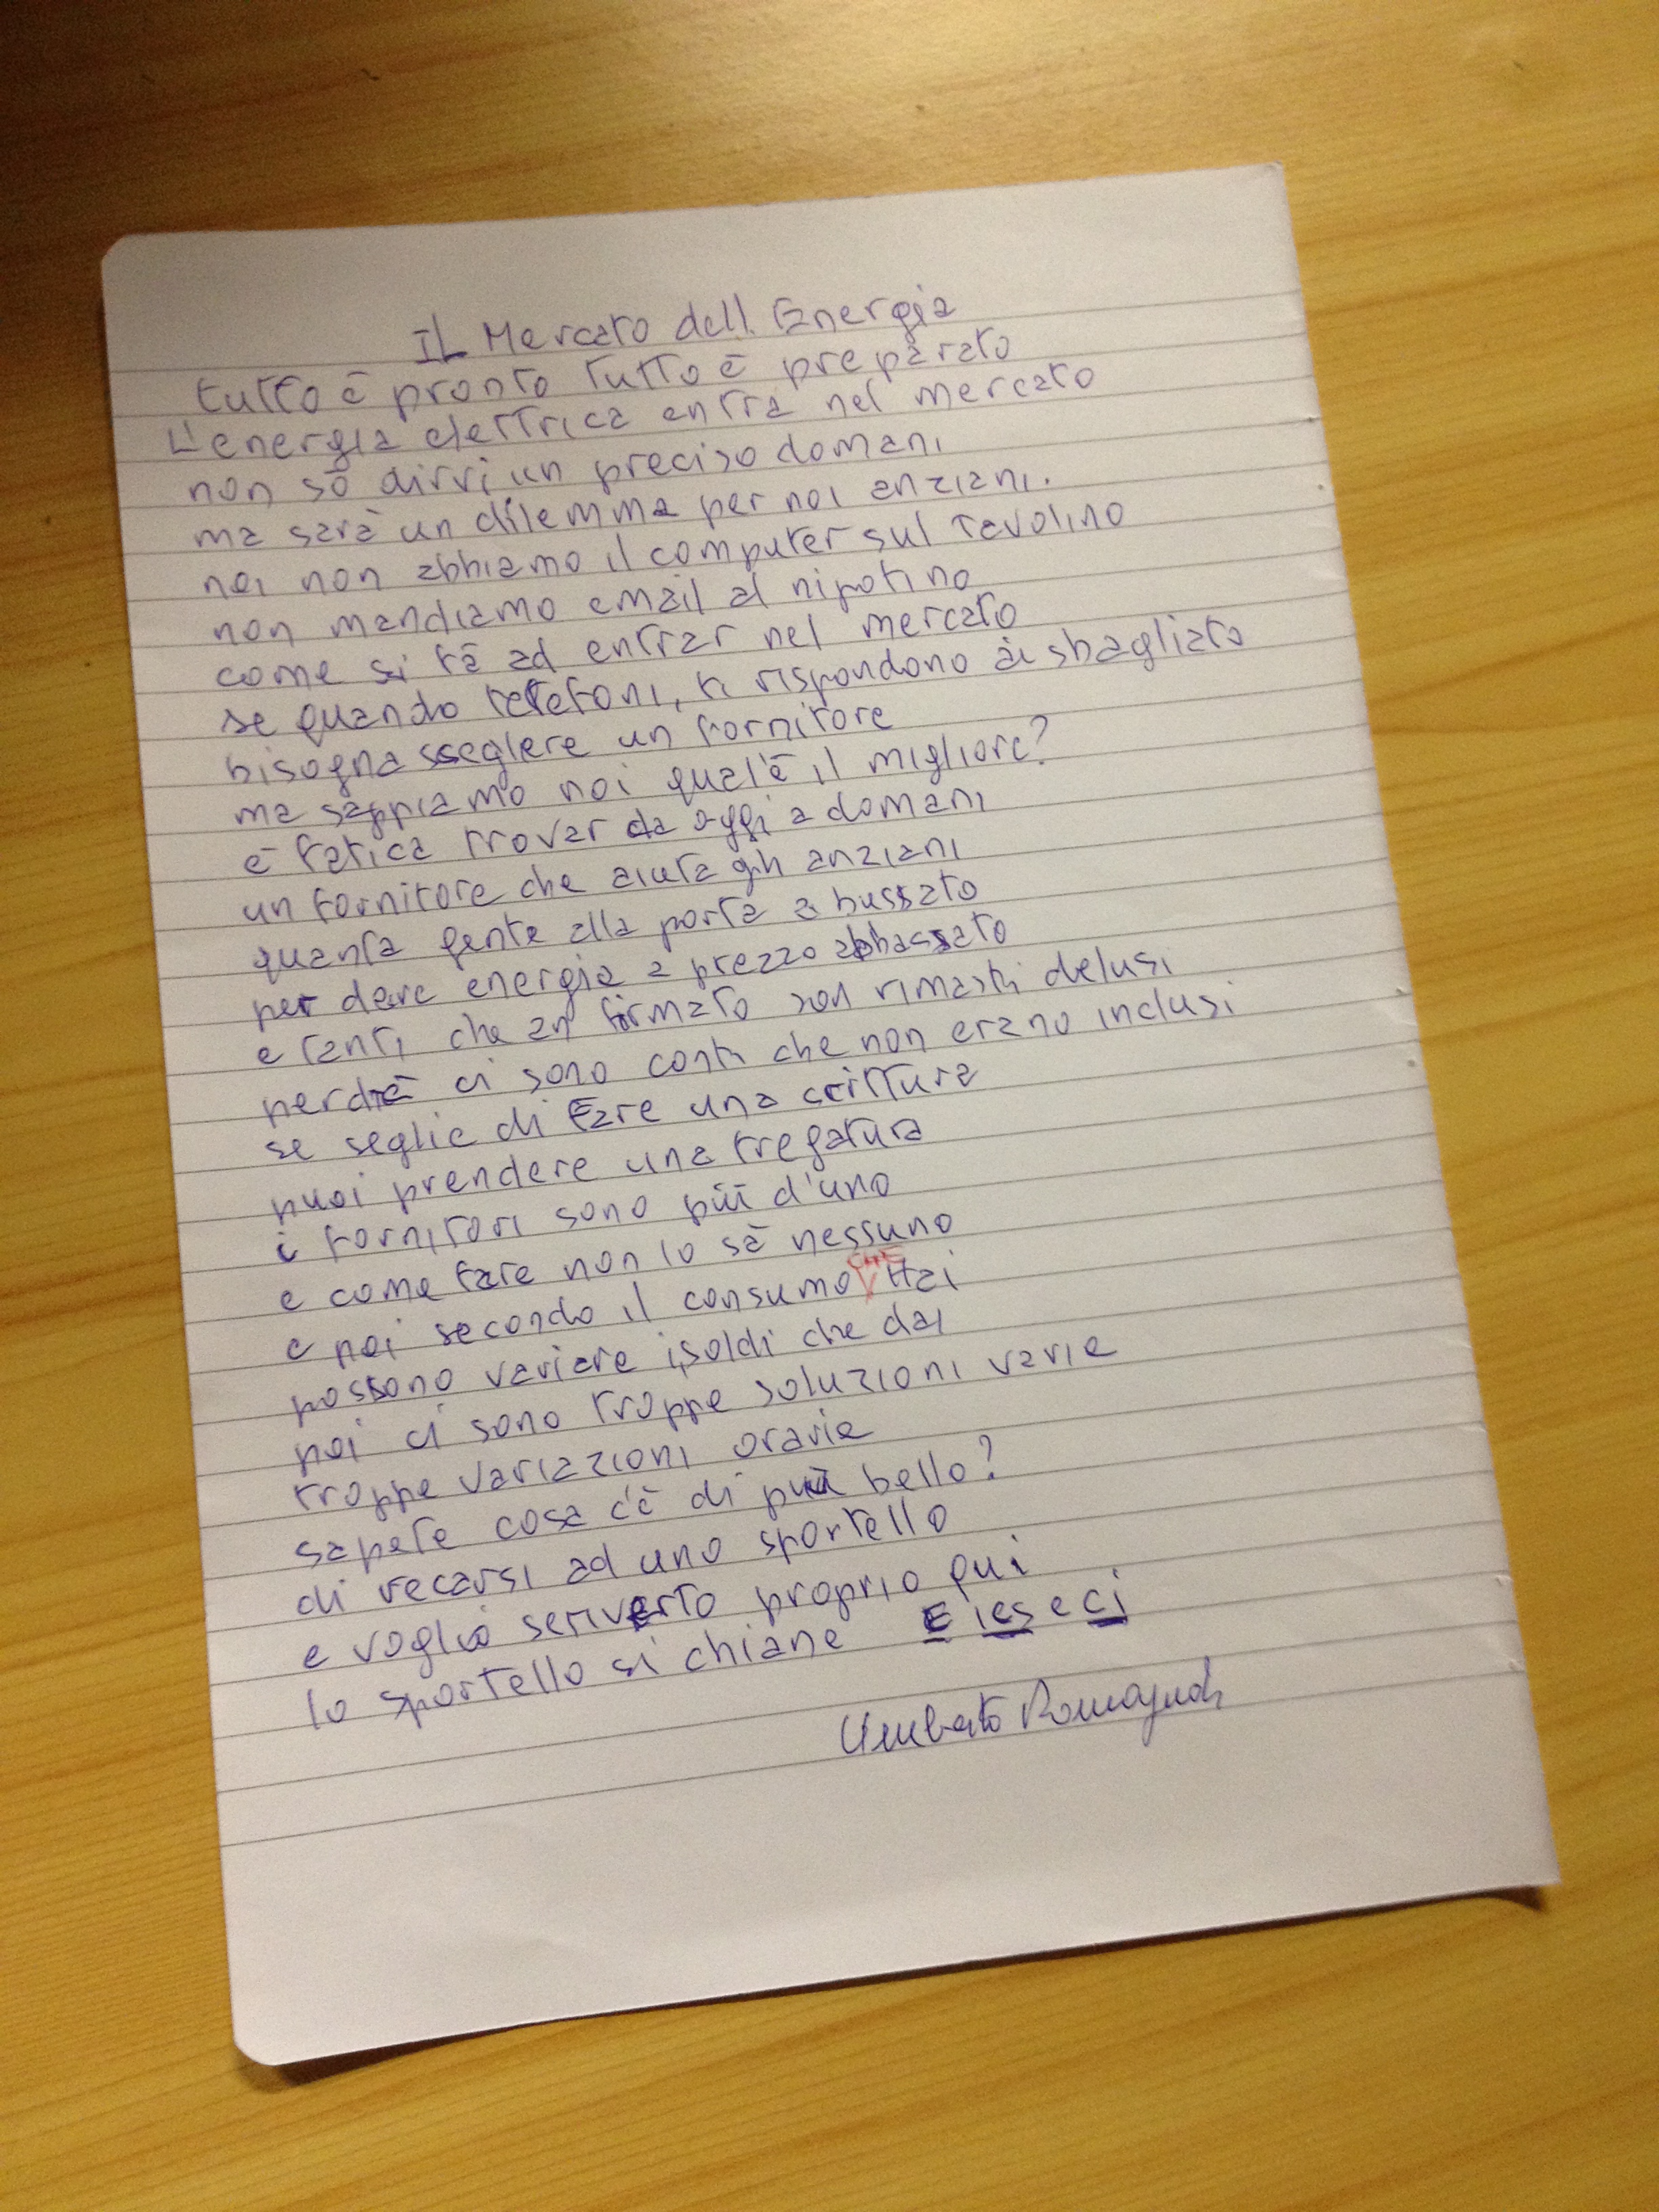 IL Mercato dell'Energia
tutto è pronto tutto è preparato
L'energia elettrica entra nel mercato
non sò dirvi un preciso domani
ma sarà un dilemma per noi anziani.
noi non abbiamo il computer sul tavolino
non mandiamo email al nipotino
come si fà ad entrar nel mercato
se quando telefoni, ti rispondono ài sbagliato
bisogna sseglere un fornitore
ma sappiamo noi qual'è il migliore?
è fatica trovar da oggi a domani
un fornitore che aiuta gli anziani
quanta gente alla porta a bussato
per dare energia a prezzo abbassato
e tanti che an firmato son rimasti delusi
perchè ci sono conti che non erano inclusi
se seglie di fare una scrittura
puoi prendere una fregatura
i fornitori sono più d'uno
e come fare non lo sà nessuno
e poi secondo il consumo che Hai
possono variare i soldi che dai
poi ci sono troppe soluzioni varie
troppe variazioni orarie
sapete cosa c'è di più bello?
di recarsi ad uno sportello
e voglio scriverto proprio qui
lo sportello si chiane E ies e ci
Umberto Romagnoli